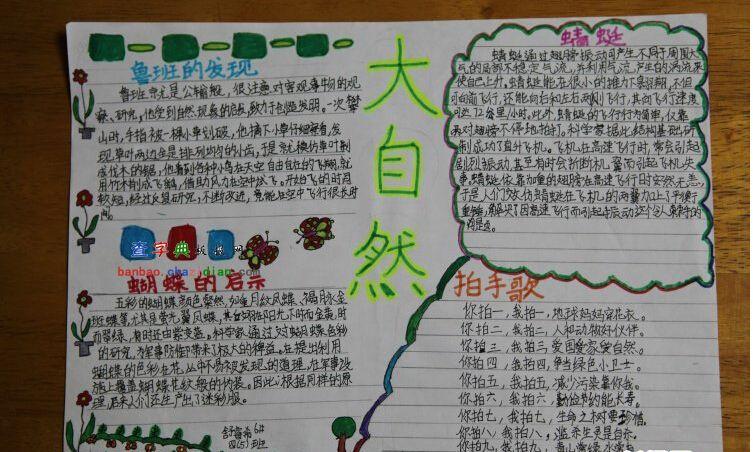 鲁班的发现
鲁班也是公输般,很注意对客观事物的观
察、研究,他受到自然现象的启发,致力于创造发明。一次攀
山时,手指被一棵小草划破,他摘下小草仔细察看,发
现草叶两边全是排列均匀的小齿,于是就模仿草叶制
成伐木的锯,他看到各种小鸟在天空自由自在的飞翔,就
用竹木削成飞鹞,借助风力在空中试飞。开始飞的时间
较短,经过反复研究,不断改进,竟能在空中飞行很长时
间。
查字典
banbao.chazidian.com
蝴蝶的启示
五彩的蝴蝶颜色粲然,如重月纹凤蝶、褐脉金
斑蝶等,尤其是萤光翼凤蝶,其后翅在阳光下时而金黄,时
而翠绿,有时还由紫变蓝。科学家通过对蝴蝶色彩
的研究,为军事防御带来了极大的裨益。在提出利用
蝴蝶的色彩在花丛中不易被发现的道理,在军事设
施上覆盖蝴蝶花纹般的伪装。因此,根据同样的原
理,后来人们还生产出了迷彩服。
6#
四(5)班
大自然
蜻蜓
蜻蜓通过翅膀振动可产生不同于周围大
气的局部不稳定气流,并利用气流产生的涡流来
使自己上升。蜻蜓能在很小的推力下翱翔,不但
可向前飞行,还能向后和左右两侧飞行,其向前飞行速度
可达72公里/小时。此外,蜻蜓的飞行行为简单,仅靠
两对翅膀不停地拍打。科学家据此结构基础研
制成功了直升飞机。飞机在高速飞行时,常会引起
剧烈振动,甚至有时会折断机翼而引起飞机失
事。蜻蜓依靠加重的翅膀在高速飞行时安然无恙,
于是人们效仿蜻蜓在飞机的两翼加上了平衡
重锤,解决了因高速飞行而引起振动这个令人棘手的
问题。
拍手歌
你拍一,我拍一,地球妈妈穿花衣。
你拍二,我拍二,人和动物好伙伴。
你拍三,我拍三,爱国爱家爱自然。
你拍四,我拍四,争当绿色小卫士。
你拍五,我拍五,减少污染靠你我。
你拍六,我拍六,勤俭节约能长寿。
你拍七,我拍七,生命之树要珍惜。
你拍八,我拍八,滥杀生灵是自杀。
你拍九,我拍九,青山常绿水常